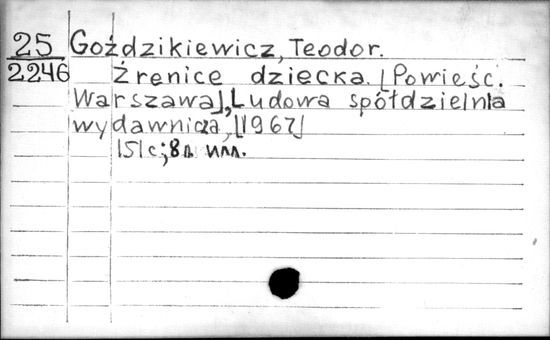 25
2246
Goździkiewicz, Teodor.
Źrenice dziecka. [Powieść.
Warszawa], Ludowa spółdzielnia
wydawnicza, [1967]
151 с; 8л. илл.